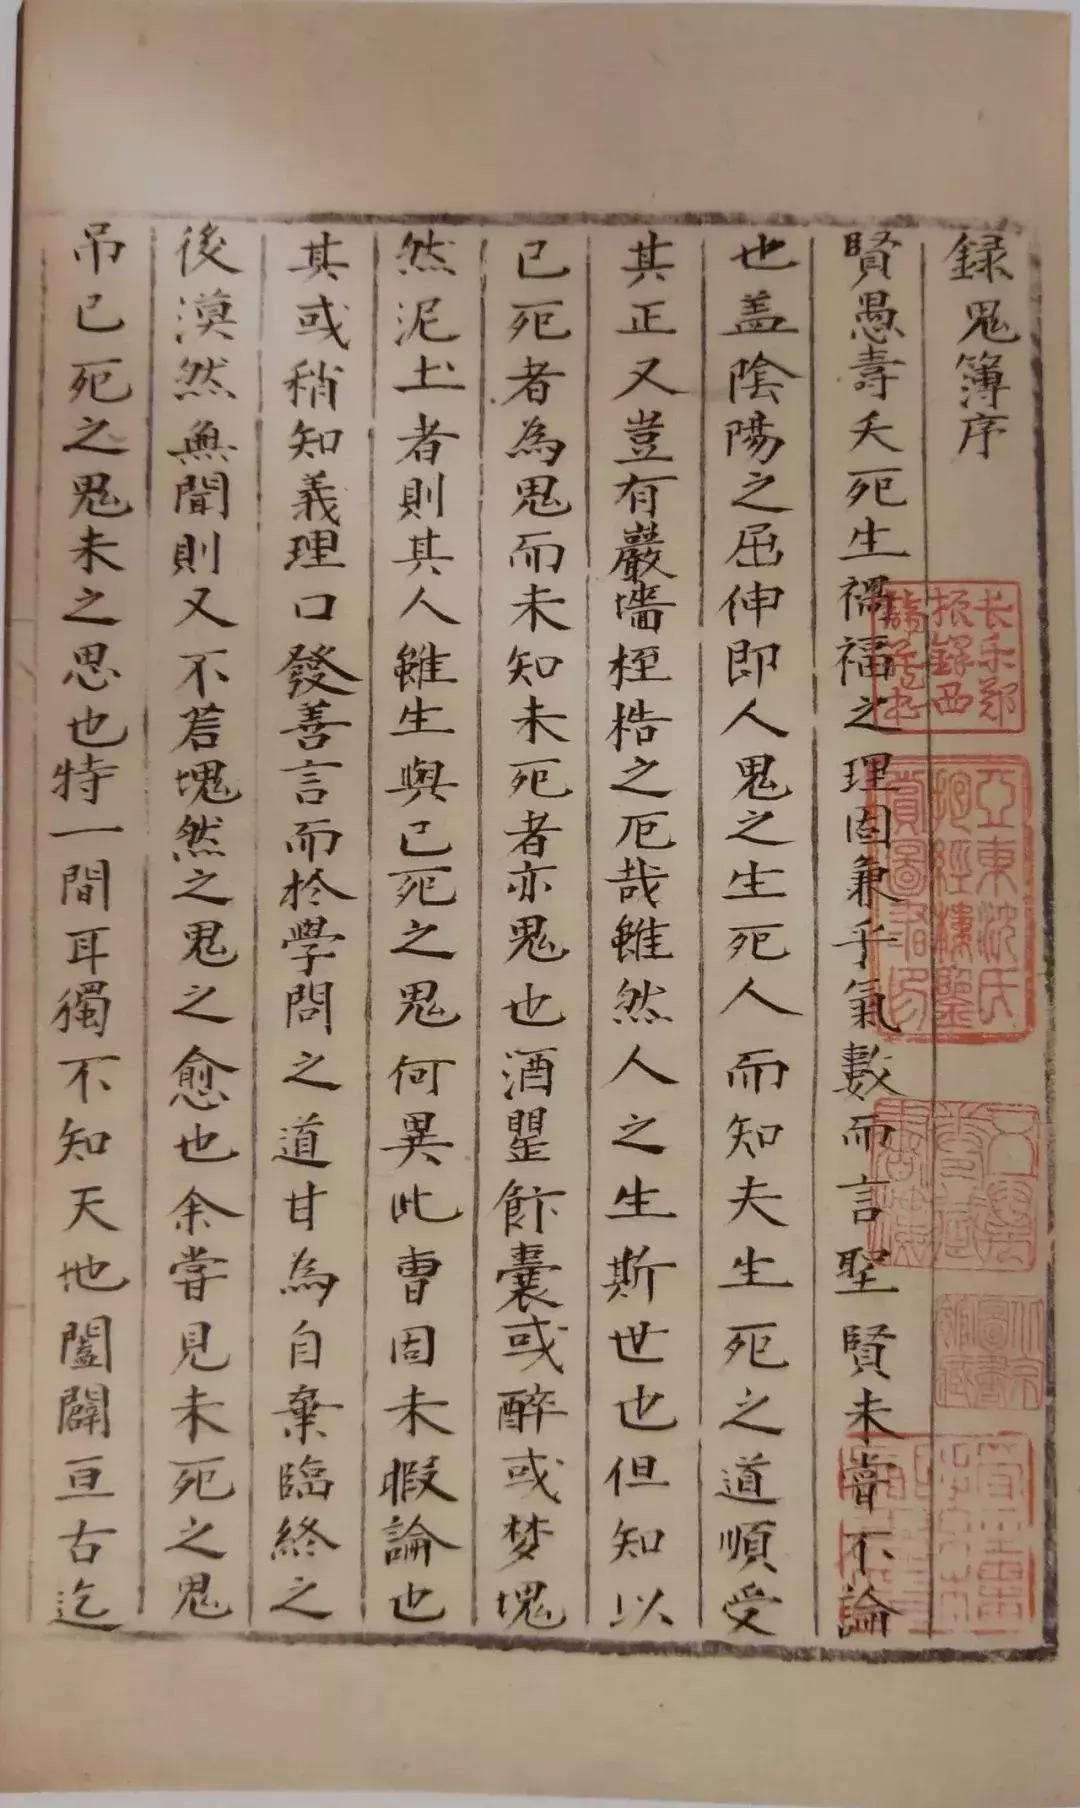 録鬼簿序
賢愚壽夭死生禍福之理固兼乎氣數而言聖賢未嘗不論
也盖陰陽之屈伸即人鬼之生死人而知夫生死之道順受
其正又豈有嚴墻桎梏之厄哉雖然人之生斯世也但知以
已死者為鬼而未知未死者亦鬼也酒罌飰囊或醉或梦塊
然泥土者則其人雖生與已死之鬼何異此曹固未暇論也
其或稍知義理口發善言而於學問之道甘為自棄臨終之
後漠然無聞則又不若塊然之鬼之愈也余嘗見未死之鬼
吊已死之鬼未之思也特一間耳獨不知天地闔闢亘古迄
长乐郑
振鐸西
諦藏书
亞東沈氏
抱經樓鑒
賞圖書印